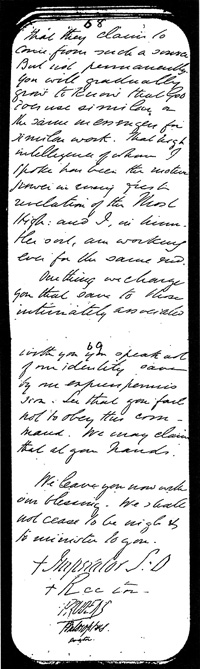 68
that they claim to
come from such a source
But not permanently.
You will gradually
grow to know that God
ever use similar or
the same messengers for
similar work. That high
intelligence of whom I
spoke has been the motive
power in every great
revelation of the Most
High: and I, in
sort, am working
ever for the same end.
One thing we charge
you that save to those
intimately associated
69
with you you speak not
of our identity save
by our express permis
sion. See that you fail
not to obey this com-
mand. We may claim
that at your hands.
We leave you now with
our blessing. We shall
not cease to be nigh &
to minister to you.
+ Imperator S:D
+ Rector
PRUDENS